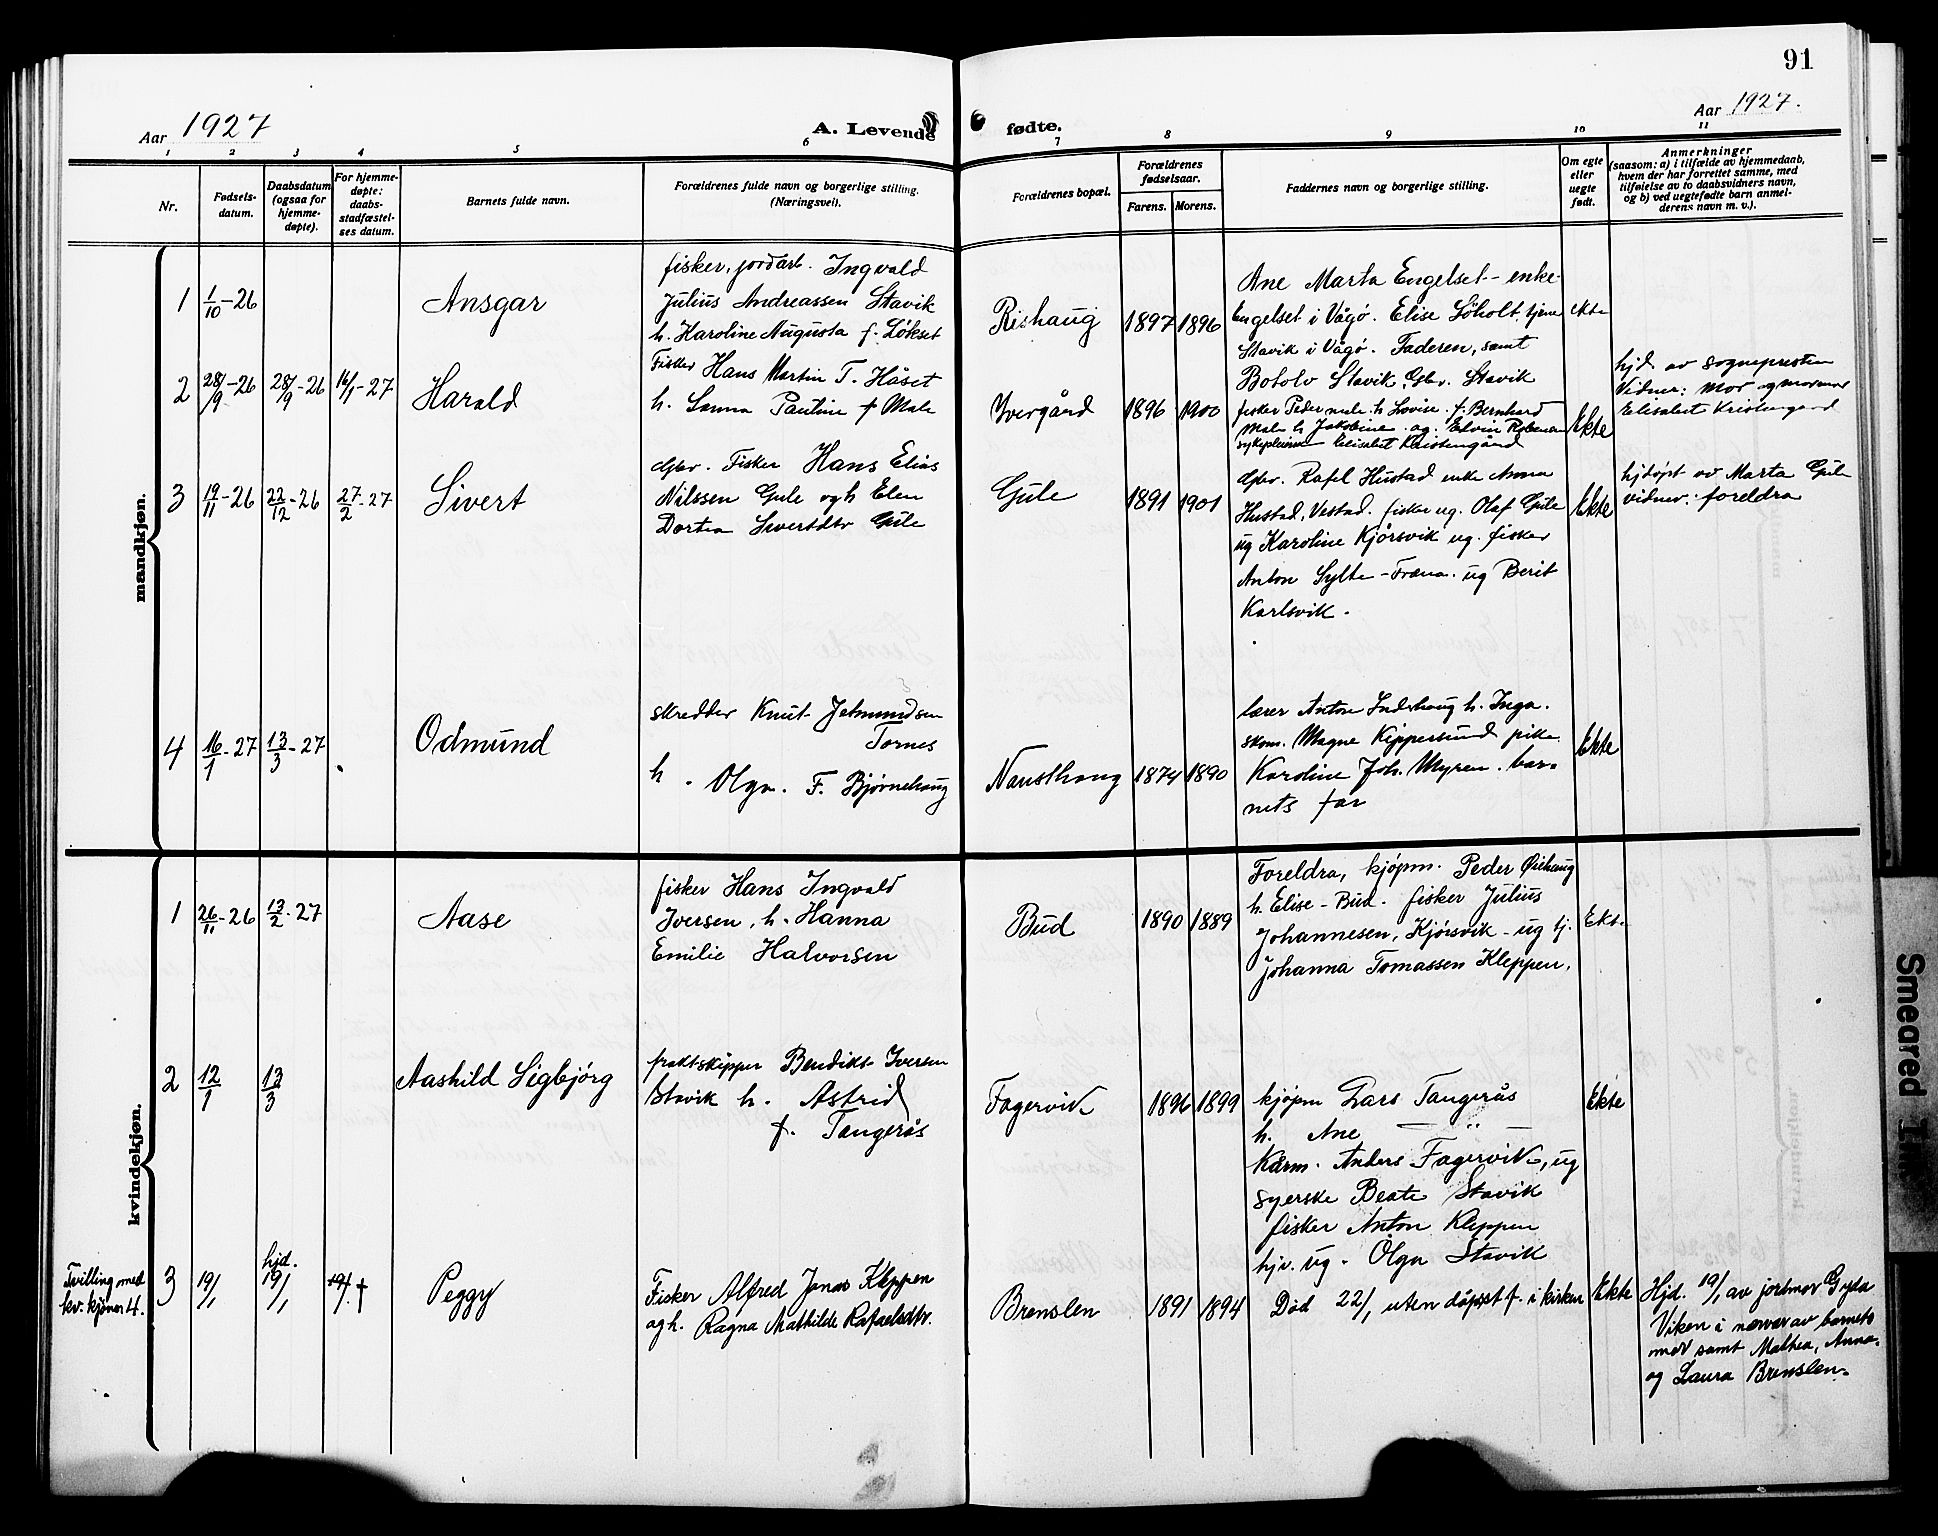 91
Aar 1927
A. Levende fødte.
Aar 1927.
1 2 3 4 5 6 7 8 9 10 11
Nr.
Fødsels-
datum.
Daabsdatum
(ogsaa for
hjemme-
døpte).
For hjemme-
døpte:
daabs-
stadfæstel-
ses datum.
Barnets fulde navn.
Forældrenes fulde navn og borgerlige stilling.
(Næringsvei).
Forældrenes bopæl.
Forældrenes
fødselsaar.
Farens. Morens.
Faddernes navn og borgerlige stilling.
Om egte
eller
uegte
født.
Anmerkninger
(saasom: a) i tilfælde av hjemmedaab,
hvem der har forrettet samme, med
tilføielse av to daabsvidners navn,
og b) ved uegtefødte barn anmel-
derens navn m. v.).
mandkjøn.
1 1/10-26 Ansgar
fisker, jordarb. Ingvald
Julius Andreassen Stavik
h. Karoline Augusta f. Løkset
Rishaug 1897 1896
Ane Marta Engelset - enke
Engelset i Vågø. Elise Söholt, tjene
Stavik i Vågø. Faderen, samt
Botolv Stavik, Gbr. Stavik
ekte
2 28/9-26 28/9-26 16/1-27 Harald
Fisker Hans Martin T. Håset
h. Sanna Pauline f Male
Yvergård 1896 1900
fisker Peder male h Lovise f. Bernhard
Male h Jakobine og Edvin
Elisabet Kristengård
Ekte
hjd av sognepresten
Vidner: mor og mormor
Elisabet Kristengård
3 19/11-26 22/12-26 27/2-27 Sivert
Gbr. Fisker Hans Elias
Nilssen Gule og h Elen
Dortea Sivertdtr Gule
Gule 1891 1901
Gbr. Rafel Hustad enke Anna
Hustad, Vestad. fisker ug. Olaf Gule
ug Karoline Kjørsvik ug. fisker
Anton Sylte - Fræna. ug Berit
Karlsvik.
Ekte
hjdöpt av Marta Gule
vidner: foreldra
4 16/1-27 13/3-27 Odmund
skredder Knut Jetmundsen
Tornes
h. Olga. F. Bjørnehaug
Nausthaug 1874 1890
lærer Anton Inderhaug h. Inga.
skom. Magne Kippersund pike
Karoline Joh. Myren. bar-
nets far
Ekte
kvindekjøn.
1 26/11-26 13/2-27 Aase
fisker Hans Ingvald
Iversen, h. Hanna
Emilie Halvorsen
Bud 1890 1889
Foreldra, kjöpm. Peder Øiehaug
h. Elise - Bud. fisker Julius
Johannesen, Kjörsvik - ug tj.
Johanna Tomassen Kleppen.
Ekt.
2 12/1 13/3 Aashild Sigbjörg
fraktskipper Bendikt Iversen
Stavik h. Astrid
f. Tangerås
Fagervik 1896 1899
kjöpm Lars Tangerås
h. Ane — " —
Karm. Anders Fagervik, ug
syerske Beate Stavik
fisker Anton Kleppen
hjv. ug. Olga Stavik
Ekte
Tvilling med
kv. kjönnr 4.
3 19/1 hjd. 19/1 19/1 † Peggy
Fisker Alfred Jonas Kleppen
og h. Ragna Mathilde Rafaelsdtr.
Brenslen 1891 1894
Död 22/1, uten dåpsstf. i kirken
Ekte
Hjd. 19/1 av jordmor Gyda
Viken i nærvær av barnets
mor samt Mathea, Anna
og Laura Brenslen.
Smeared